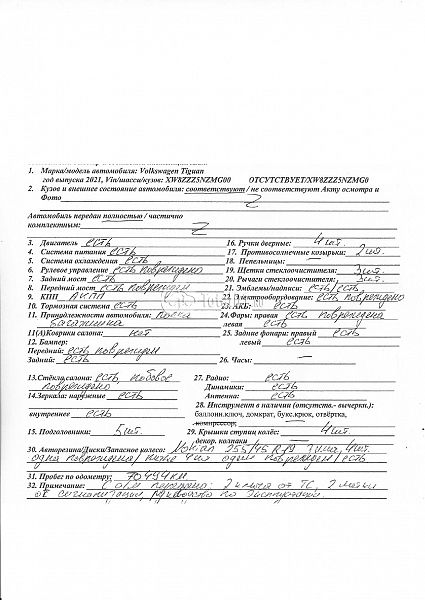 1. Марка/модель автомобиля: Volkswagen Tiguan
год выпуска 2021, Vin/шасси/кузов: XW8ZZZ5NZMG00 ОТСУТСТВУЕТ/XW8ZZZ5NZMG0
2. Кузов и внешнее состояние автомобиля: соответствуют / не соответствуют Акту осмотра и
Фото Z
Автомобиль передан полностью / частично
комплектным: Z
3. Двигатель есть 16. Ручки дверные: 4 шт.
4. Система питания есть 17. Противосолнечные козырьки: 2 шт.
5. Система охлаждения есть 18. Пепельницы: —
6. Рулевое управление есть повреждено 19. Щетки стеклоочистителя: 3 шт.
7. Задний мост есть 20. Рычаги стеклоочистителя: 3 шт.
8. Передний мост есть поврежден 21. Эмблемы/надписи: есть/есть
9. КПП АКПП 22. Электрооборудование: есть повреждено
10. Тормозная система есть 23. АКБ: есть
11. Принадлежности автомобиля: полка 24. Фары: правая есть повреждена
багажника левая есть
11(А) Коврики салона: нет 25. Задние фонари: правый есть
12. Бампер: левый есть
Передний: есть поврежден
Задний: есть 26. Часы: —
13. Стёкла салона: есть лобовое 27. Радио: есть
повреждено Динамики: есть
14. Зеркала: наружные есть Антенна: есть
28. Инструмент в наличии (отсутств.- вычеркн.):
внутреннее есть баллонн.ключ, домкрат, букс.крюк, отвёртка,
компрессор,
15. Подголовники: 5 шт. 29. Крышки ступиц колёс: 4 шт.
декор. колпаки
30. Авторезина/Диски/Запасное колесо: Nokian 255/45 R19 Зима, 4 шт.
одна повреждена / литые 4 шт один поврежден / есть
31. Пробег по одометру: 70494 км.
32. Примечание: С а/м передано: 2 ключа от ТС, 2 метки
от сигнализации, руководство по эксплуатации.